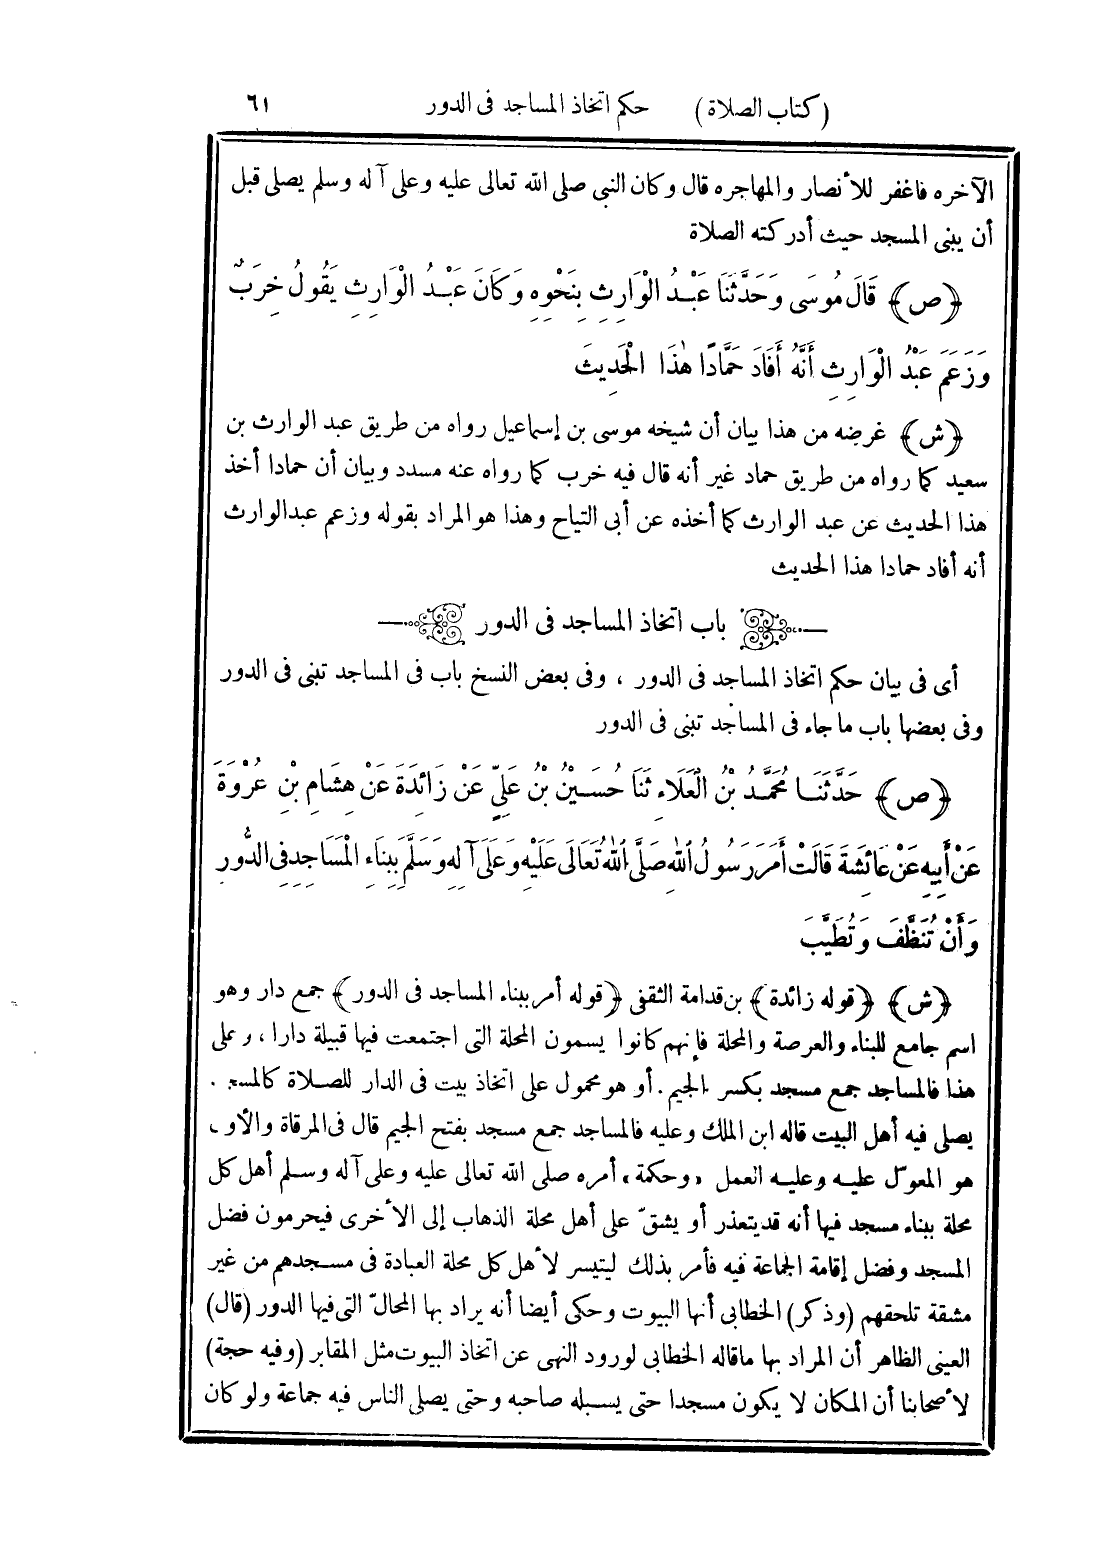 (كتاب الصلاة) حكم اتخاذ المساجد فى الدور ٦١
الآخره فاغفر للأنصار والمهاجره قال وكان النبى صلى الله تعالى عليه وعلى آله وسلم يصلى قبل
أن يبنى المسجد حيث أدركته الصلاة
﴿ص﴾ قَالَ مُوسَى وَحَدَّثَنَا عَبْدُ الْوَارِثِ بِنَحْوِهِ وَكَانَ عَبْدُ الْوَارِثِ يَقُولُ خِرَبٌ
وَزَعَمَ عَبْدُ الْوَارِثِ أَنَّهُ أَفَادَ حَمَّادًا هٰذَا الْحَدِيثَ
﴿ش﴾ غرضه من هذا بيان أن شيخه موسى بن إسماعيل رواه من طريق عبد الوارث بن
سعيد كما رواه من طريق حماد غير أنه قال فيه خرب كما رواه عنه مسدد وبيان أن حمادا أخذ
هذا الحديث عن عبد الوارث كما أخذه عن أبى التياح وهذا هو المراد بقوله وزعم عبد الوارث
أنه أفاد حمادا هذا الحديث
باب اتخاذ المساجد فى الدور
أى فى بيان حكم اتخاذ المساجد فى الدور ، وفى بعض النسخ باب فى المساجد تبنى فى الدور
وفى بعضها باب ما جاء فى المساجد تبنى فى الدور
﴿ص﴾ حَدَّثَنَا مُحَمَّدُ بْنُ الْعَلَاءِ ثَنَا حُسَيْنُ بْنُ عَلِيٍّ عَنْ زَائِدَةَ عَنْ هِشَامِ بْنِ عُرْوَةَ
عَنْ أَبِيهِ عَنْ عَائِشَةَ قَالَتْ أَمَرَ رَسُولُ اللهِ صَلَّى اللهُ تَعَالَى عَلَيْهِ وَعَلَى آلِهِ وَسَلَّمَ بِبِنَاءِ الْمَسَاجِدِ فِى الدُّورِ
وَأَنْ تُنَظَّفَ وَتُطَيَّبَ
﴿ش﴾ ﴿قوله زائدة﴾ بن قدامة الثقفى ﴿قوله أمر ببناء المساجد فى الدور﴾ جمع دار وهو
اسم جامع للبناء والعرصة والمحلة فإنهم كانوا يسمون المحلة التى اجتمعت فيها قبيلة دارا ، وعلى
هذا فالمساجد جمع مسجد بكسر الجيم . أو هو محمول على اتخاذ بيت فى الدار للصلاة
يصلى فيه أهل البيت قاله ابن الملك وعليه فالمساجد جمع مسجد بفتح الجيم قال فى المرقاة
هو المعوّل عليه وعليه العمل «وحكمة» أمره صلى الله تعالى عليه وعلى آله وسلم أهل كل
محلة ببناء مسجد فيها أنه قد يتعذر أو يشقّ على أهل محلة الذهاب إلى الأخرى فيحرمون فضل
المسجد وفضل إقامة الجماعة فيه فأمر بذلك ليتيسر لأهل كل محلة العبادة فى مسجدهم من غير
مشقة تلحقهم (وذكر) الخطابى أنها البيوت وحكى أيضا أنه يراد بها المحالّ التى فيها الدور (قال)
العينى الظاهر أن المراد بها ما قاله الخطابى لورود النهى عن اتخاذ البيوت مثل المقابر (وفيه حجة)
لأصحابنا أن المكان لا يكون مسجدا حتى يسبله صاحبه وحتى يصلى الناس فيه جماعة ولو كان